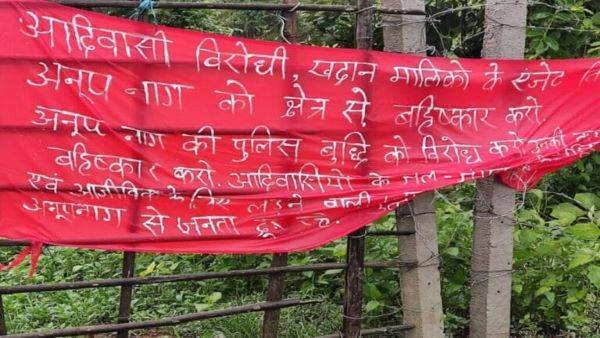 आदिवासी विरोधी, खदान मालिको के एजेंट
अनूप नाग को क्षेत्र से बहिष्कार करो.
अनूप नाग की पुलिस बुद्धि को विरोध करो उनकी
बहिष्कार करो आदिवासियो के जल-
एवं आजीविक के लिए लड़ने वाली
अनूपनाग से जनता दूर रहे.